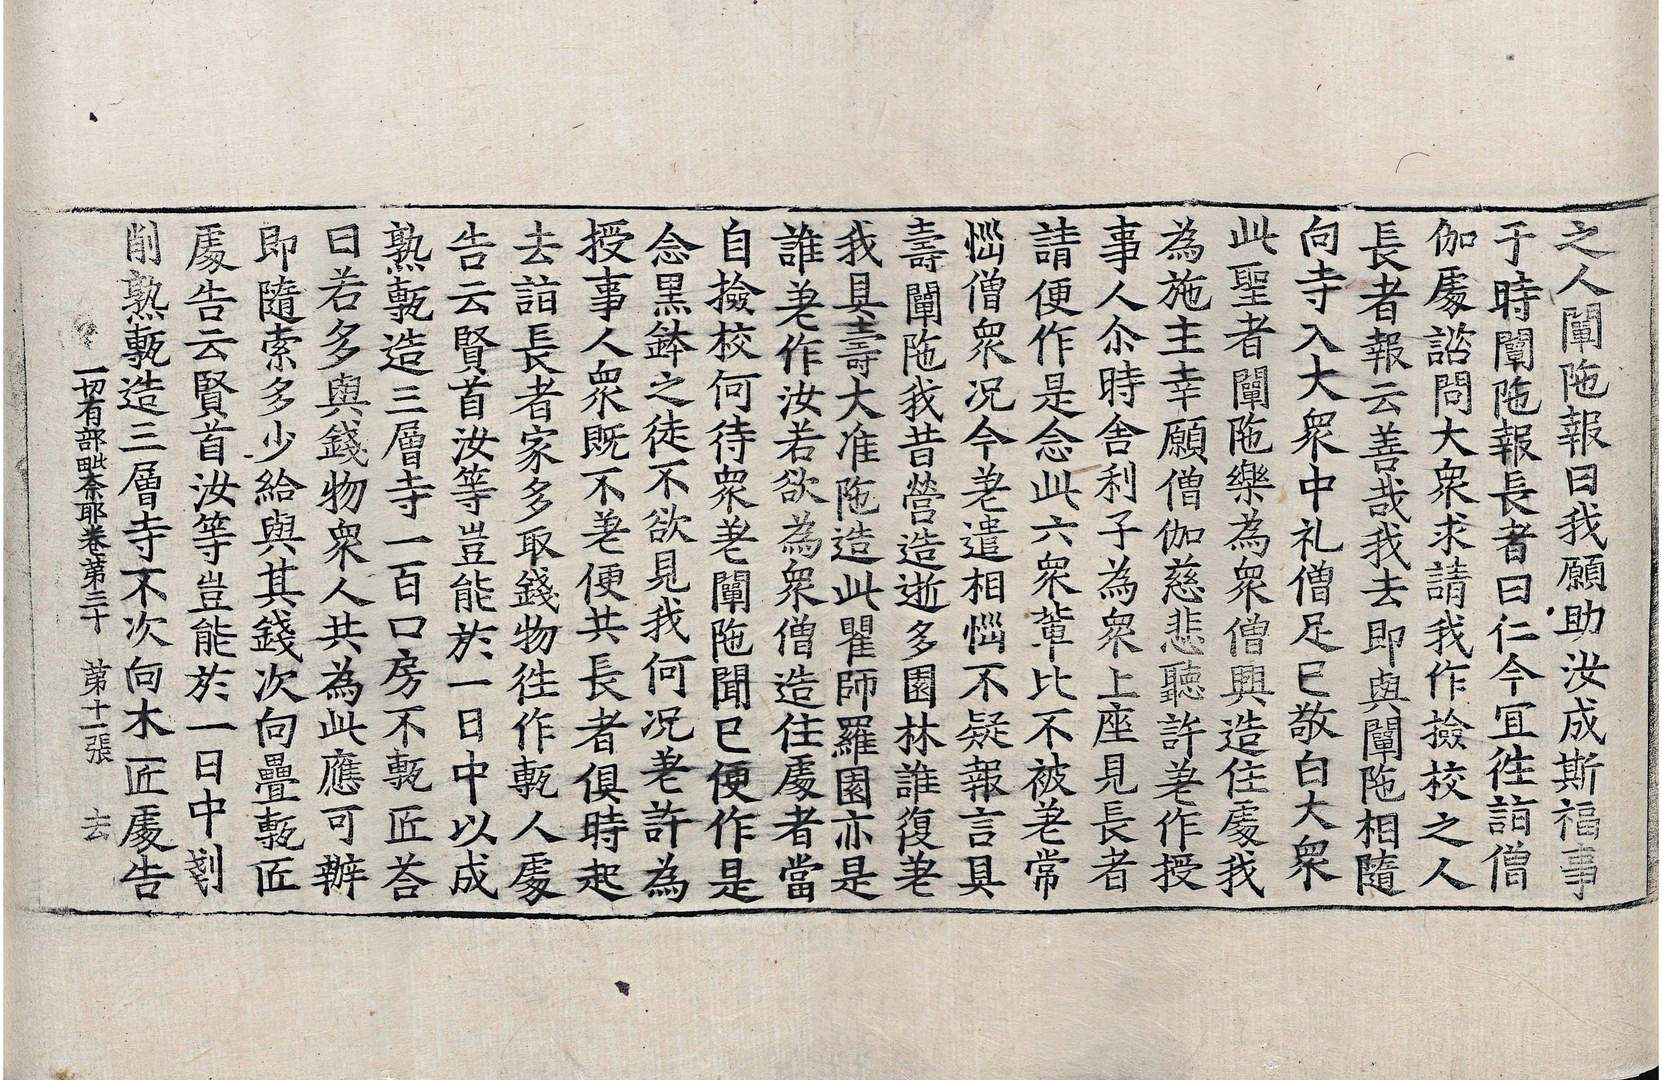 之人闡陁報曰我願助汝成斯福事
于時闡陁報長者曰仁今冝徃詣僧
伽處諮問大衆求請我作撿校之人
長者報云善哉我去即與闡陁相隨
向寺入大衆中礼僧足已敬白大衆
此聖者闡陁樂為衆僧興造住處我
為施主幸願僧伽慈悲聽許差作授
事人尒時舍利子為衆上座見長者
請便作是念此六衆輩比不被差常
惱僧衆况今差遣相惱不疑報言具
壽闡陁我昔營造逝多園林誰復差
我具壽大准陁造此瞿師羅園亦是
誰差作汝若欲為衆僧造住處者當
自撿校何待衆差闡陁聞已便作是
念黑鉢之徒不欲見我何况差許為
授事人衆既不差便共長者俱時起
去詣長者家多取錢物徃作甎人處
告云賢首汝等豈能於一日中以成
熟甎造三層寺一百口房不甎匠荅
曰若多與錢物衆人共為此應可辦
即隨索多少給與其錢次向壘甎匠
處告云賢首汝等豈能於一日中剗
削熟甎造三層寺不次向木匠處告
一切有部毗奈耶卷第三十 第十一張 去